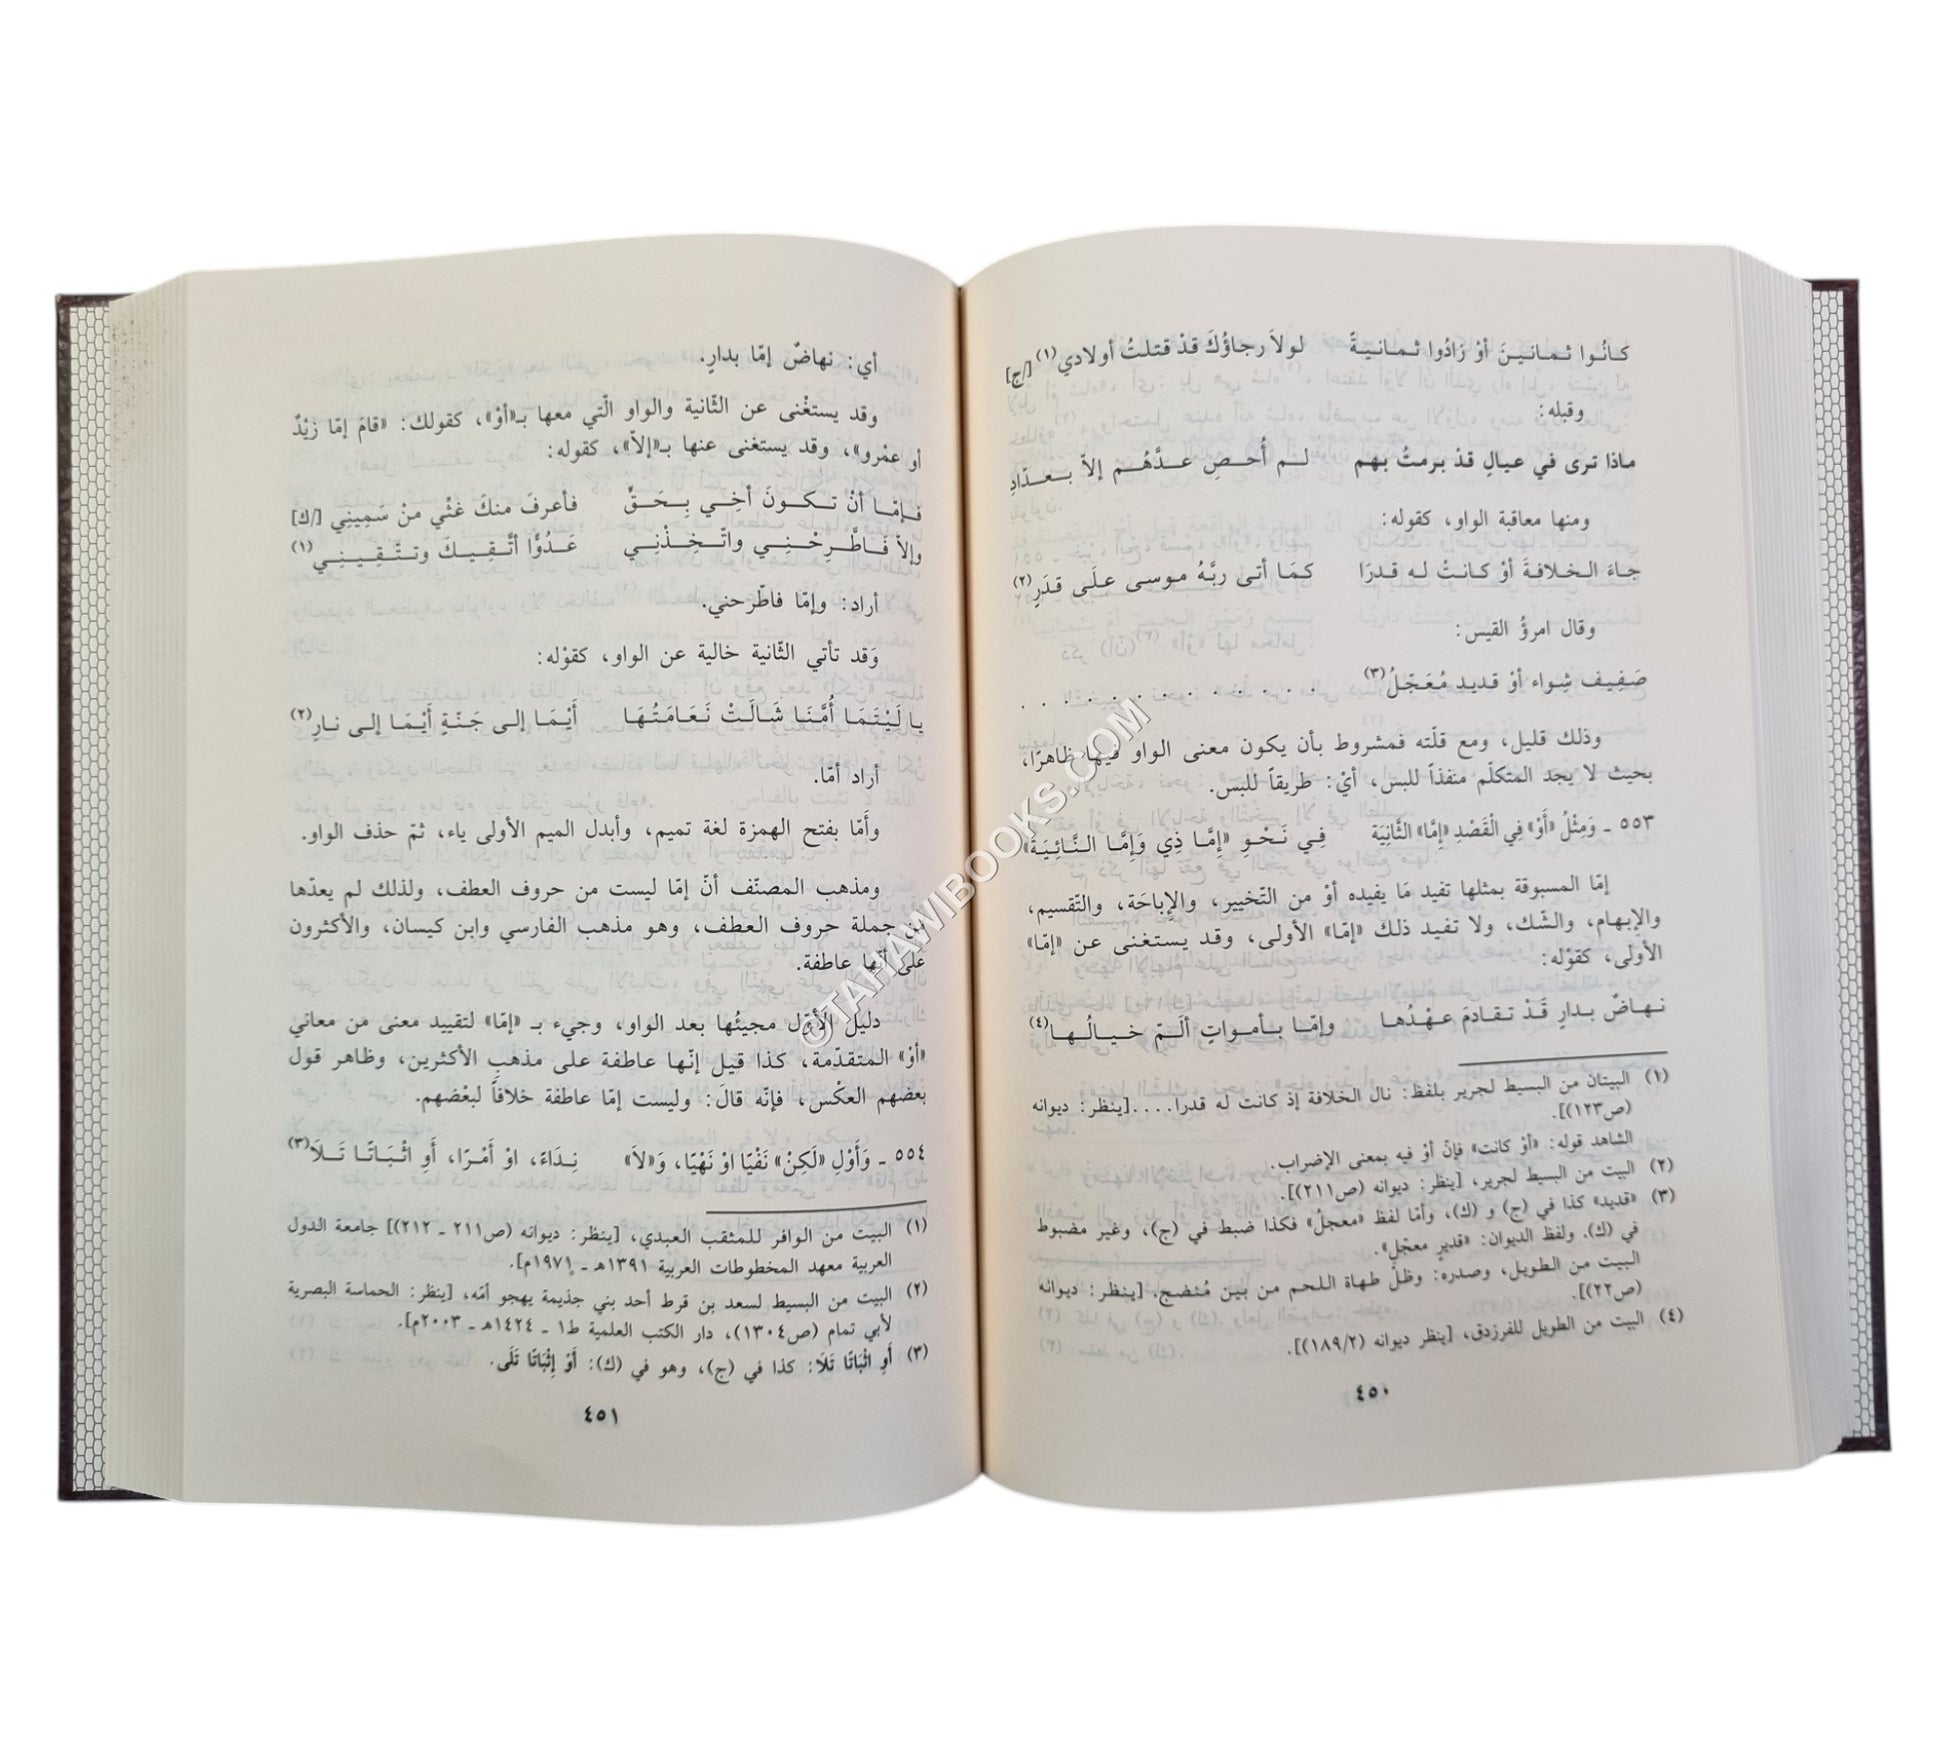 كانُوا ثمانينَ أوْ زادُوا ثمانيةً لولاَ رجاؤُكَ قدْ قتلتُ أولادي(١) [/ج]
وقبله:
ماذا ترى في عيالِ قدْ برمتُ بهم لم أُحصِ عدَّهُم إلاّ بعدّادِ
ومنها معاقبة الواو، كقوله:
جاءَ الخلافةَ أوْ كانتْ له قدرَا كمَا أتى ربَّهُ موسى علَى قدَرِ(٢)
وقال امرؤُ القيس:
. . . . . . . . . . . . صَفِيف شِواء أوْ قديد مُعَجّلُ(٣)
وذلك قليل، ومع قلّته فمشروط بأن يكون معنى الواو فيها ظاهرًا،
بحيث لا يجد المتكلّم منفذاً للبس، أيْ: طريقاً للبس.
٥٥٣ ـ وَمِثْلُ «أوْ» فِي الْقَصْدِ «إمَّا» الثَّانِيَة فِي نَحْوِ «إمَّا ذِي وَإمَّا النَّائِيَةَ»
إمّا المسبوقة بمثلها تفيد مَا يفيده أوْ من التّخيير، والإباحَة، والتّقسيم،
والإبهام، والشّك، ولا تفيد ذلك «إمّا» الأولى، وقد يستغنى عن «إمّا»
الأولَى، كقوْله:
نهاضٌ بدارٍ قَدْ تقادمَ عهْدُها وإمّا بأمواتٍ ألَمّ خيالُها(٤)
(١) البيتان من البسيط لجرير بلفظ: نال الخلافة إذ كانت له قدرا....[ينظر: ديوانه
(ص١٢٣)].
الشاهد قوله: «أو كانت» فإنّ أوْ فيه بمعنى الإضراب.
(٢) البيت من البسيط لجرير، [ينظر: ديوانه (ص٢١١)].
(٣) «قديد» كذا في (ج) و (ك)، وأمّا لفظ «معجلُ» فكذا ضبط في (ج)، وغير مضبوط
في (ك). ولفظ الديوان: «قديرٍ معجّلِ».
البيت من الطويل، وصدره: وظلّ طهاة اللحم من بين مُنضج. [ينظر: ديوانه
(ص٢٢)].
(٤) البيت من الطويل للفرزدق، [ينظر ديوانه (٢/١٨٩)].
٤٥٠
أي: نهاضٌ إمّا بدارٍ.
وقد يستغْنى عن الثّانية والواو الّتي معها بـ«أوْ»، كقولك: «قامَ إمّا زيْدٌ
أو عمْرو»، وقد يستغنى عنها بـ«إلاّ»، كقوله:
فإمّا أنْ تكونَ أخِي بِحَقٍّ فأعرفَ منكَ غثِّي منْ سَمِينِي [/ك]
وإلاّ فَاطَّرِحْنِي واتّخِذْنِي عَدُوًّا أتَّقِيكَ وتتّقِينِي(١)
أراد: وإمّا فاطّرحني.
وَقد تأتي الثّانية خالية عن الواو، كقوْله:
يا لَيْتَمَا أُمَّنَا شَالَتْ نَعَامَتُهَا أَيْمَا إلى جَنّةٍ أَيْمَا إلى نارِ(٢)
أراد أمّا.
وأمّا بفتح الهمزة لغة تميم، وأبدل الميم الأولى ياء، ثمّ حذف الواو.
ومذهب المصنّف أنّ إمّا ليست من حروف العطف، ولذلك لم يعدّها
من جملة حروف العطف، وهو مذهب الفارسي وابن كيسان، والأكثرون
على أنّها عاطفة.
دليل الأوّل مجيئُها بعد الواو، وجيء بـ «إمّا» لتقييد معنى من معاني
«أوْ» المتقدّمة، كذا قيل إنّها عاطفة على مذهبِ الأكثرين، وظاهر قول
بعضهم العكْس، فإنّه قالَ: وليست إمّا عاطفة خلافاً لبعْضهم.
٥٥٤ ـ وَأَوْلِ «لَكِنْ» نَفْيًا اوْ نَهْيًا، وَ«لاَ» نِدَاءً، اوْ أَمْرًا، أَوِ اثْبَاتًا تَلاَ(٣)
(١) البيت من الوافر للمثقب العبدي، [ينظر: ديوانه (ص٢١١ ـ ٢١٢)] جامعة الدول
العربية معهد المخطوطات العربية ١٣٩١هـ ـ ١٩٧١م].
(٢) البيت من البسيط لسعد بن قرط أحد بني جذيمة يهجو أمّه، [ينظر: الحماسة البصرية
لأبي تمام (ص١٣٠٤)، دار الكتب العلمية ط١ ـ ١٤٢٤هـ ـ ٢٠٠٣م].
(٣) أَوِ اثْبَاتًا تَلاَ: كذا في (ج)، وهو في (ك): أَوْ إِثْبَاتًا تَلَى.
٤٥١
©TAHAWIBOOKS.COM